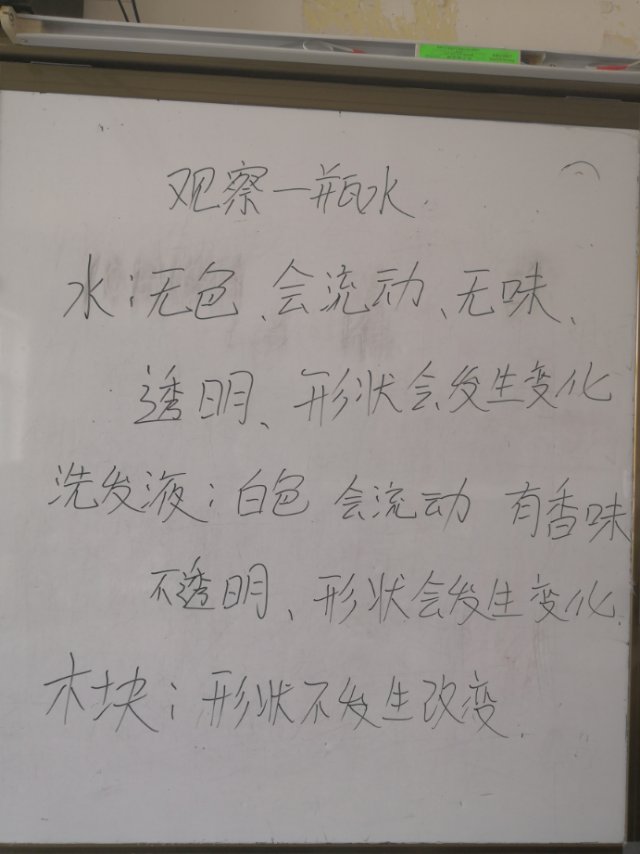 观察一瓶水.
水:无色、会流动、无味、
透明、形状会发生变化
洗发液:白色 会流动 有香味
不透明、形状会发生变化.
木块:形状不发生改变.